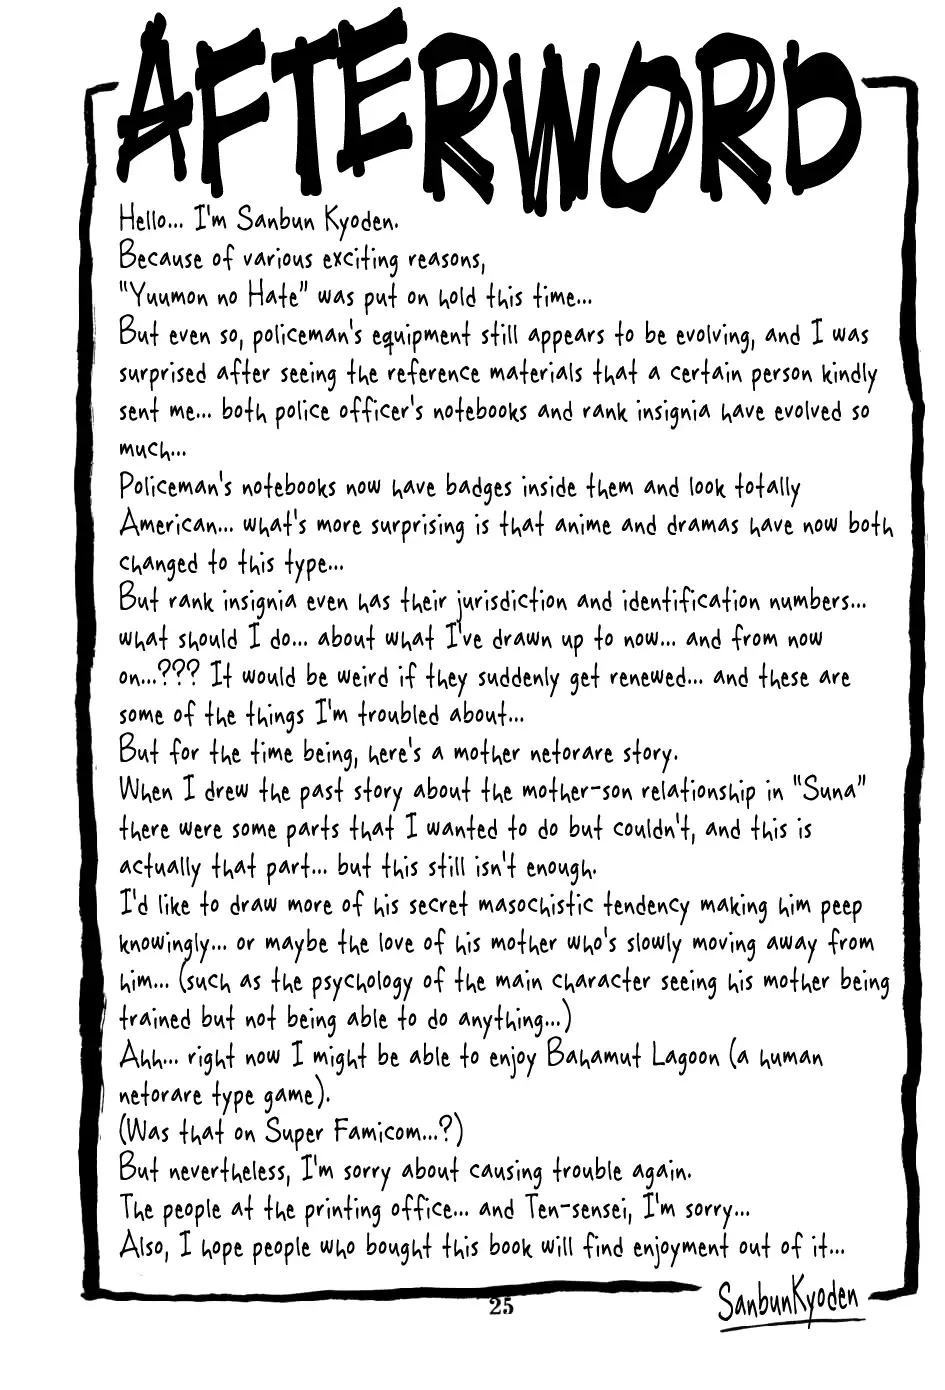 AFTERWORD
Hello... I'm Sanbun Kyoden.
Because of various exciting reasons,
"Yuumon no Hate" was put on hold this time...
But even so, policeman's equipment still appears to be evolving, and I was
surprised after seeing the reference materials that a certain person kindly
sent me... both police officer's notebooks and rank insignia have evolved so
much...
Policeman's notebooks now have badges inside them and look totally
American... what's more surprising is that anime and dramas have now both
changed to this type...
But rank insignia even has their jurisdiction and identification numbers...
what should I do... about what I've drawn up to now... and from now
on...??? It would be weird if they suddenly get renewed... and these are
some of the things I'm troubled about...
But for the time being, here's a mother netorare story.
When I drew the past story about the mother-son relationship in "Suna"
there were some parts that I wanted to do but couldn't, and this is
actually that part... but this still isn't enough.
I'd like to draw more of his secret masochistic tendency making him peep
knowingly... or maybe the love of his mother who's slowly moving away from
him... (such as the psychology of the main character seeing his mother being
trained but not being able to do anything...)
Ahh... right now I might be able to enjoy Bahamut Lagoon (a human
netorare type game).
(Was that on Super Famicom...?)
But nevertheless, I'm sorry about causing trouble again.
The people at the printing office... and Ten-sensei, I'm sorry...
Also, I hope people who bought this book will find enjoyment out of it...
SanbunKyoden
25